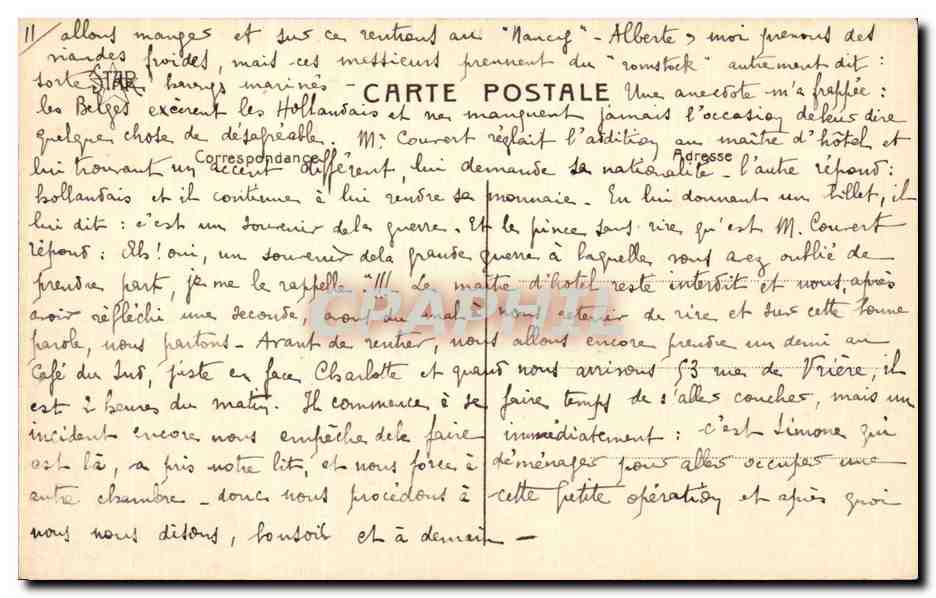 11/ allons manger et sur ce rentrons au "Nancy" - Alberte & moi prenons des
viandes froides, mais ces messieurs prennent du "romstock" autrement dit :
sorte de harengs marinés -
STAR
CARTE POSTALE
Une anecdote m'a frappée :
les Belges exècrent les Hollandais et ne manquent jamais l'occasion de leur dire
quelque chose de désagréable. Mr Couvert réglait l'addition au maître d'hôtel et
Correspondance
Adresse
lui trouvant un accent différent, lui demande sa nationalité - l'autre répond :
hollandais et il continue à lui rendre sa monnaie. En lui donnant un billet, il
lui dit : c'est un souvenir de la guerre. Et le pince sans rire qu'est M. Couvert
répond : Ah! oui, un souvenir de la grande guerre à laquelle vous avez oublié de
prendre part, je me le rappelle "!!! Le maître d'hôtel reste interdit et nous, après
avoir réfléchi une seconde, avons du mal à nous retenir de rire et sur cette bonne
CPAPHIL
parole, nous partons - Avant de rentrer, nous allons encore prendre un demi au
Café du Sud, juste en face Charlotte et quand nous arrivons 53 rue de Vrière, il
est 2 heures du matin. Il commence à se faire temps de s'aller coucher, mais un
incident encore nous empêche de le faire immédiatement : c'est Simone qui
est là, a pris notre lit, et nous force à déménager pour aller occuper une
autre chambre - donc nous procédons à cette petite opération et après quoi
nous nous disons, bonsoir et à demain -